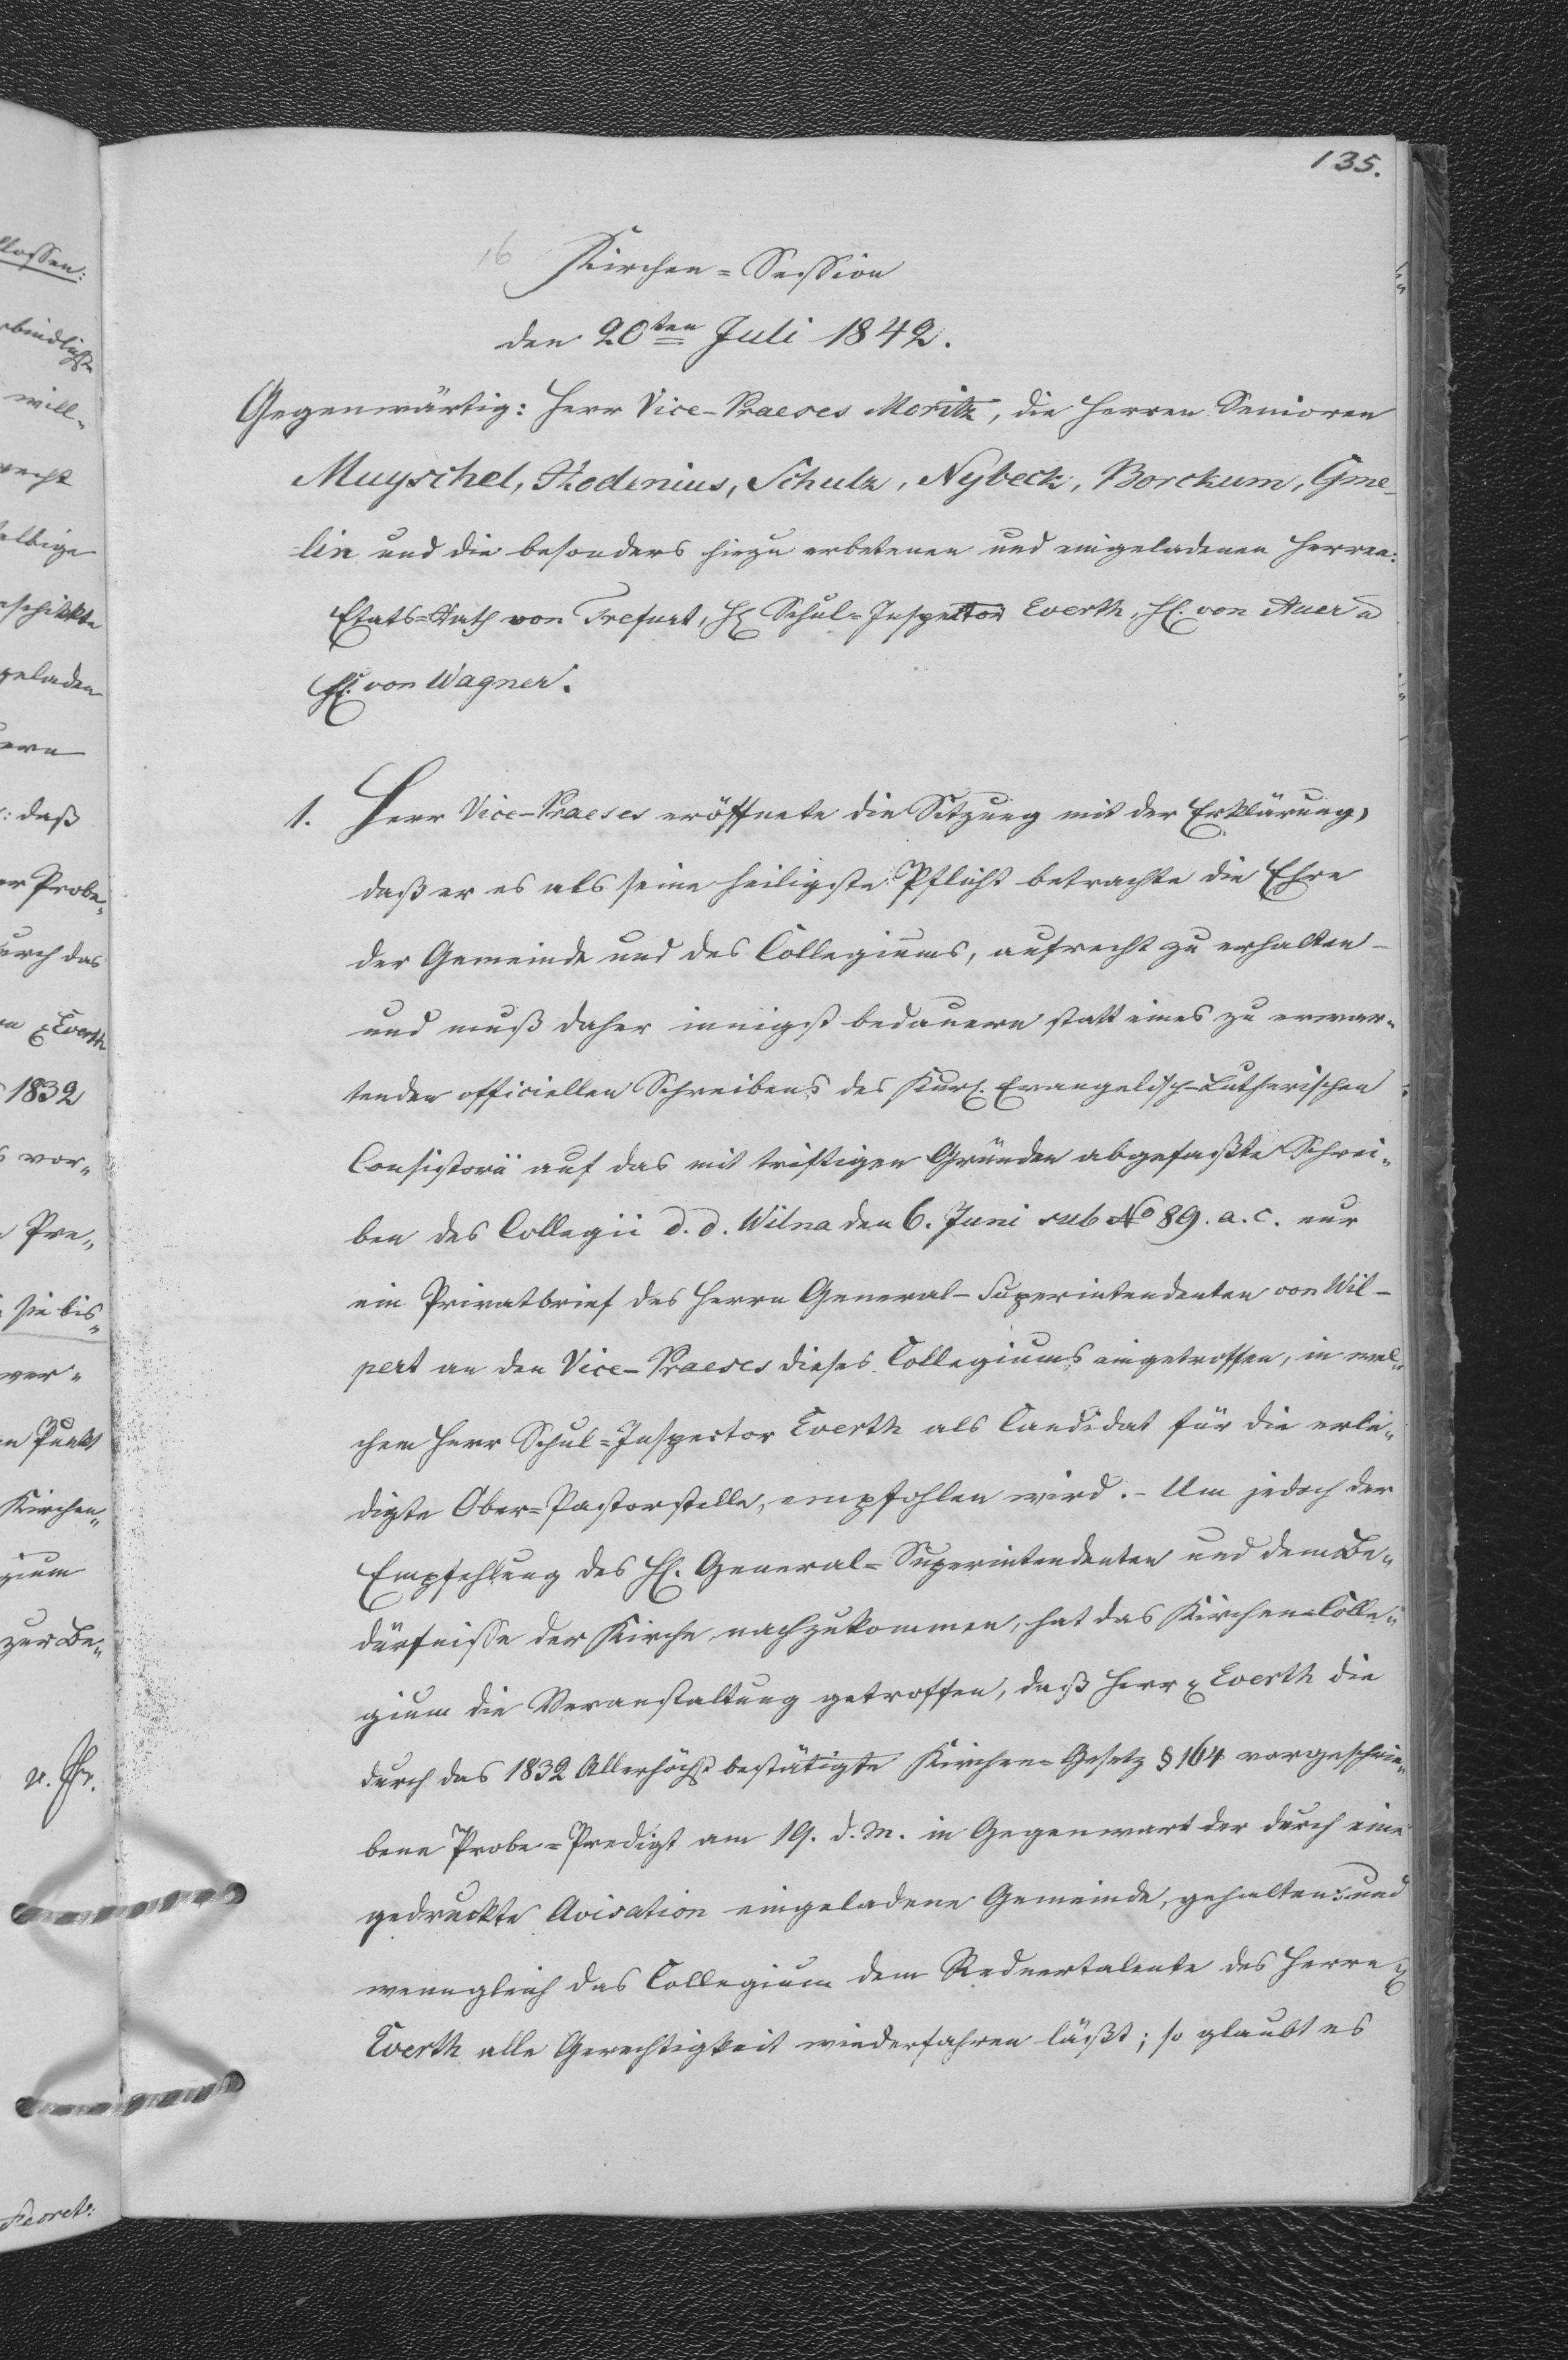 135.
16 Kirchen=Session
den 20ten Juli 1842.
Gegenwärtig: Herr Vice-Praeses Moritz, die Herren Senioren
Muyschel, Hodenius, Schulz, Nybeck, Borckum, Gme-
lin und die besonders hiezu erbetenen und eingeladenen Herren:
Etats=Rath von Trefurt, H. Schul=Inspector Everth, H. von Auer u
H. von Wagner.
1. Herr Vice-Praeses eröffnete die Sitzung mit der Erklärung,
daß er es als seine heiligste Pflicht betrachte die Ehre
der Gemeinde und des Collegiums, aufrecht zu erhalten –
und muß daher innigst bedauern statt eines zu erwar„
tenden officiellen Schreibens des Kurl. Evangelisch-Lutherischen
Consistorii auf das mit triftigen Gründen abgefaßte Schrei„
ben des Collegii d. d. Wilna den 6. Juni sub No 89. a. c. nur
ein Privatbrief des Herrn General-Superintendenten von Wil-
pert an den Vice-Praeses dieses Collegiums eingetroffen, in wel„
chem Herr Schul=Inspector Everth als Candidat für die erle„
digte Ober=Pastorstelle, empfohlen wird. – Um jedoch der
Empfehlung des H. General=Superintendenten und dem Be„
dürfnisse der Kirche nachzukommen, hat das Kirchen-Colle„
gium die Veranstaltung getroffen, daß Herr Everth die
durch das 1832 Allerhöchst bestätigte Kirchen-Gesetz § 164 vorgeschrie„
bene Probe=Predigt am 19. d. M. in Gegenwart der durch eine
gedruckte Avisation eingeladene Gemeinde, gehalten: und
wenngleich das Collegium dem Rednertalente des Herrn
Everth alle Gerechtigkeit wiederfahren läßt; so glaubt es